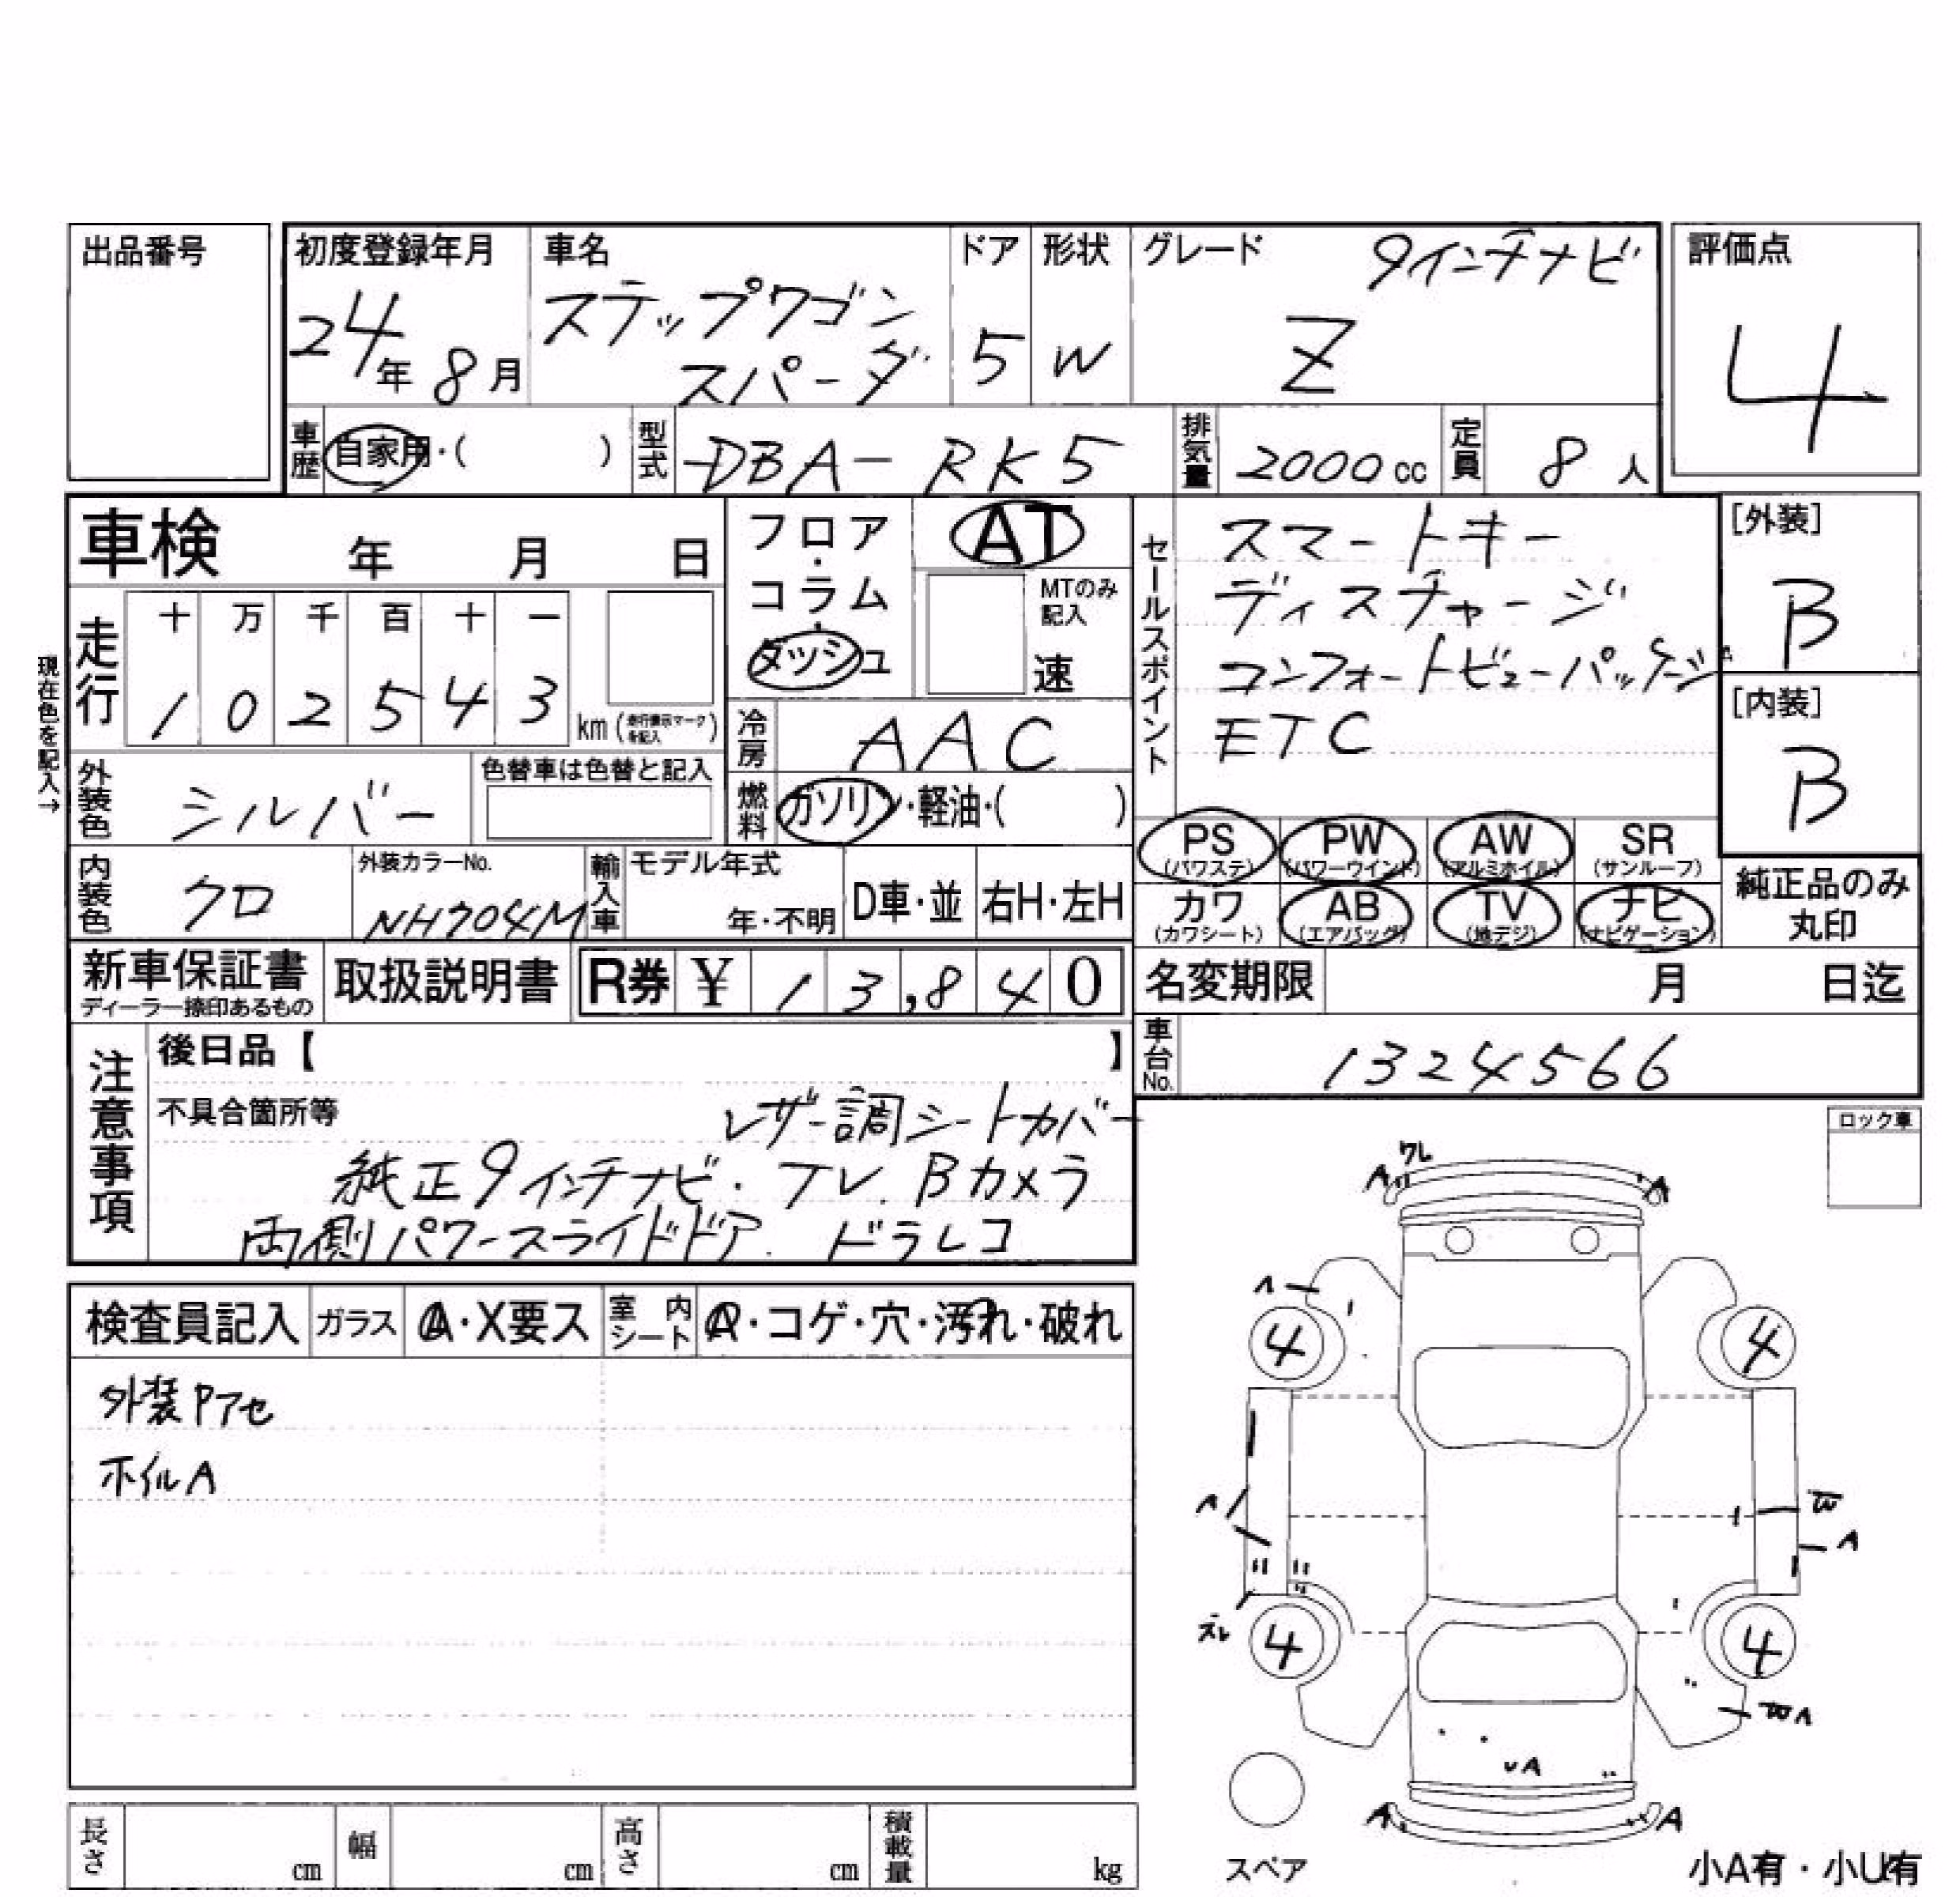 出品番号
初度登録年月
24年 8月
車名
ステップワゴン
スパーダ
ドア
5
形状
W
グレード
9インチナビ
Z
評価点
4
車歴 自家用・( )
型式 DBA-RK5
排気量 2000cc
定員 8人
車検 年 月 日
現在色を記入→
走行
十 万 千 百 十 一
1 0 2 5 4 3 km (走行表示マークを記入)
フロア・コラム・ダッシュ
AT
MTのみ記入
速
冷房 AAC
燃料 ガソリン・軽油・( )
セールスポイント
スマートキー
ディスチャージ
コンフォートビューパッケージ
ETC
[外装]
B
[内装]
B
外装色 シルバー
色替車は色替と記入
内装色 クロ
外装カラーNo.
NH704M
輸入車
モデル年式
年・不明
D車・並
右H・左H
PS (パワステ)
PW (パワーウインド)
AW (アルミホイル)
SR (サンルーフ)
カワ (カワシート)
AB (エアバッグ)
TV (地デジ)
ナビ (ナビゲーション)
純正品のみ
丸印
新車保証書
ディーラー捺印あるもの
取扱説明書
R券 ¥ 13,840
名変期限 月 日迄
車台No. 1324566
注意事項
後日品【 】
不具合箇所等 レザー調シートカバー
純正9インチナビ. TV. Bカメラ
両側パワースライドドア. ドラレコ
ロック車
検査員記入
ガラス A・X要ス
室内シート A・コゲ・穴・汚れ・破れ
外装Pアセ
ホイルA
ワレ
A A
A
4 4
A W
A
スレ
4 4
W A
UA
A A
スペア
小A有・小U有
長さ cm
幅 cm
高さ cm
積載量 kg